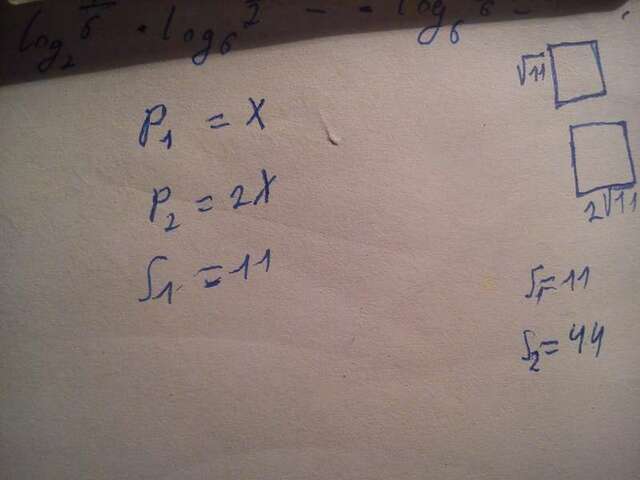 P₁ = X
P₂ = 2X
S₁ = 11
√11
2√11
S₁ = 11
S₂ = 44